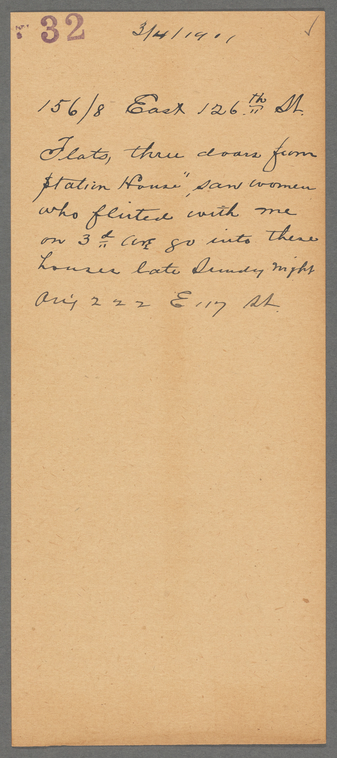 32
3/4/1901
156/8 East 126th St.
Flats, three doors from
Station House", saw women
who flirted with me
on 3d Ave go into these
houses late Sunday night
222 E 117 St.